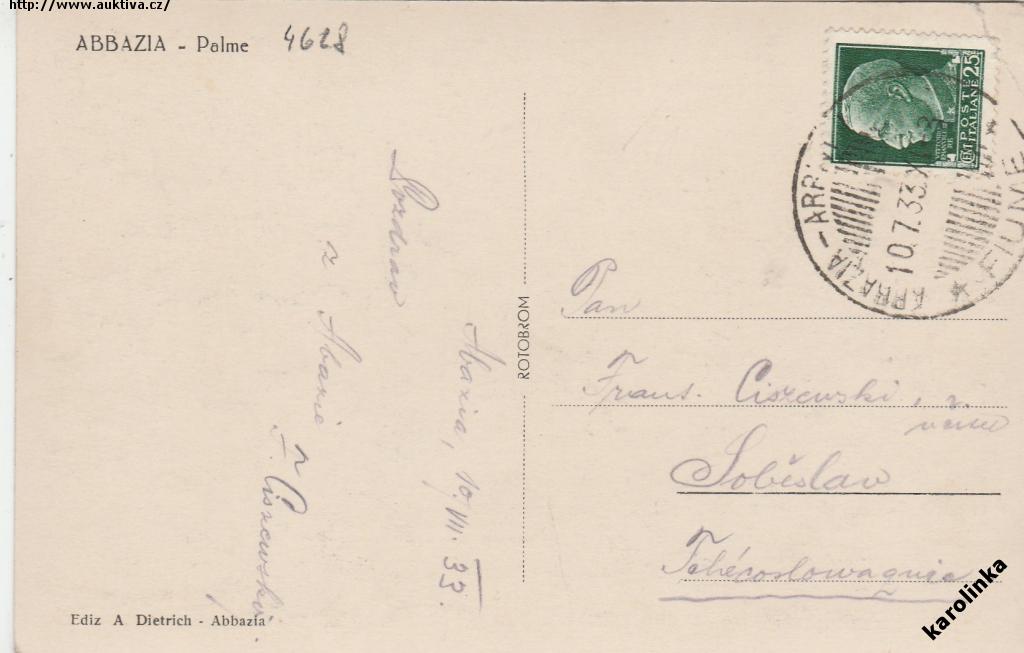 http://www.auktiva.cz/
ABBAZIA - Palme 4628
25
POSTE
ITALIANE
ABBAZIA - ARR
10.7.33.XI
FIUME
Pozdrav
z Abazie
F. Ciszewski
Abazia, 10. VII. 33.
ROTOBROM
Pan
Frans. Ciszewski,
Soběslav
Tchécoslowaquie
Ediz A Dietrich - Abbazia
karolinka